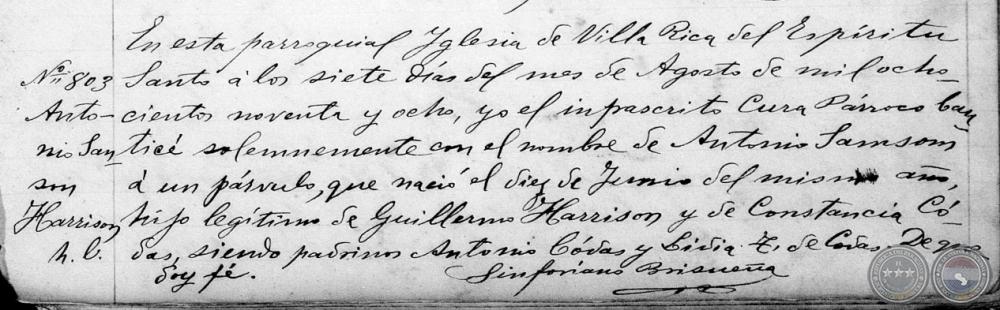 En esta parroquial Yglesia de Villa Rica del Espíritu
Nº 803 Santo á los siete días del mes de Agosto de mil ocho-
Anto- cientos noventa y ocho, yo el inpascrito Cura Párroco bau
nio San ticé solemnemente con el nombre de Antonio Samson
son á un párvulo, que nació el diez de Junio del mismo año,
Harrison hijo legítimo de Guillermo Harrison y de Constancia Có-
h. l. das, siendo padrinos Antonio Códas y Lidia Z. de Codas. De que
doy fé. Sinforiano Brisueña